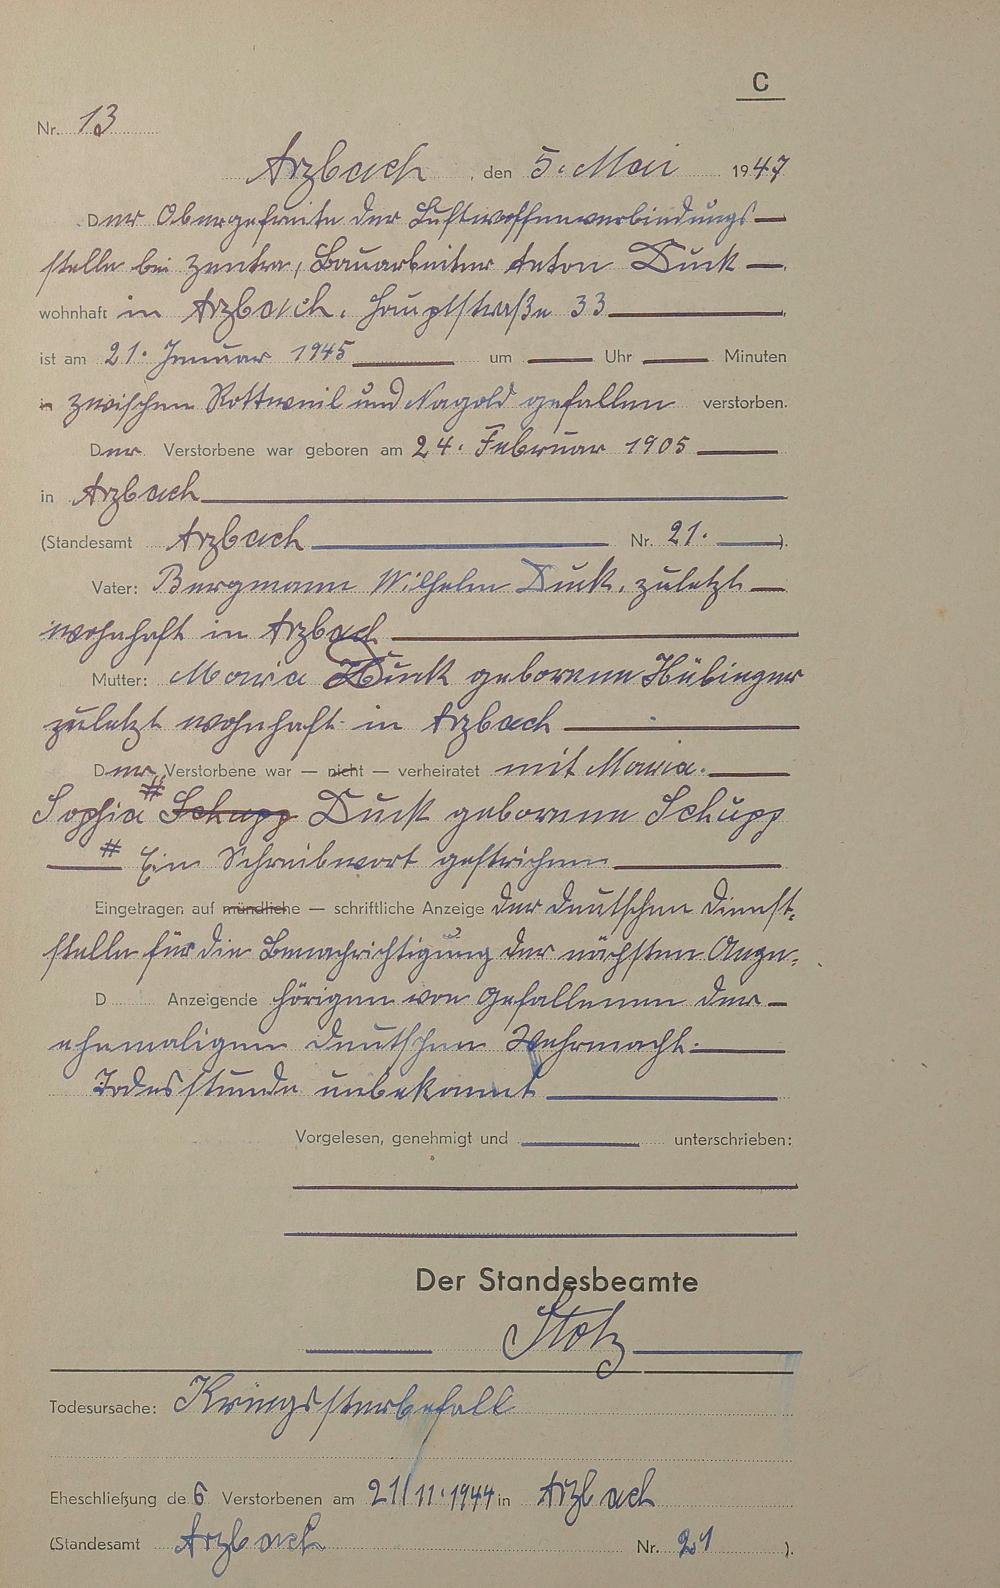 C
Nr. 13
Arzbach, den 5. Mai 1947
Der Obergefreite der Luftwaffenverbindungs-
stelle bei Zentra, Bauarbeiter Anton Duck
wohnhaft in Arzbach, Hauptstraße 33
ist am 21. Januar 1945 um Uhr Minuten
in zwischen Rottweil und Nagold gefallen verstorben.
Der Verstorbene war geboren am 24. Februar 1905
in Arzbach
(Standesamt Arzbach Nr. 21.).
Vater: Bergmann Wilhelm Duck, zuletzt
wohnhaft in Arzbach
Mutter: Maria Duck geborene Hübinger
zuletzt wohnhaft in Arzbach
Der Verstorbene war — nicht — verheiratet mit Maria
Sophia # Schupp Duck geborene Schupp
# Ein Schreibwort gestrichen
Eingetragen auf mündliche — schriftliche Anzeige der deutschen Dienst-
stelle für die Benachrichtigung der nächsten Ange-
D Anzeigende hörigen von Gefallenen der
ehemaligen deutschen Wehrmacht.
Todesstunde unbekannt
Vorgelesen, genehmigt und unterschrieben:
Der Standesbeamte
Stotz
Todesursache: Kriegssterbefall
Eheschließung des Verstorbenen am 21/11.1944 in Arzbach
(Standesamt Arzbach Nr. 21).